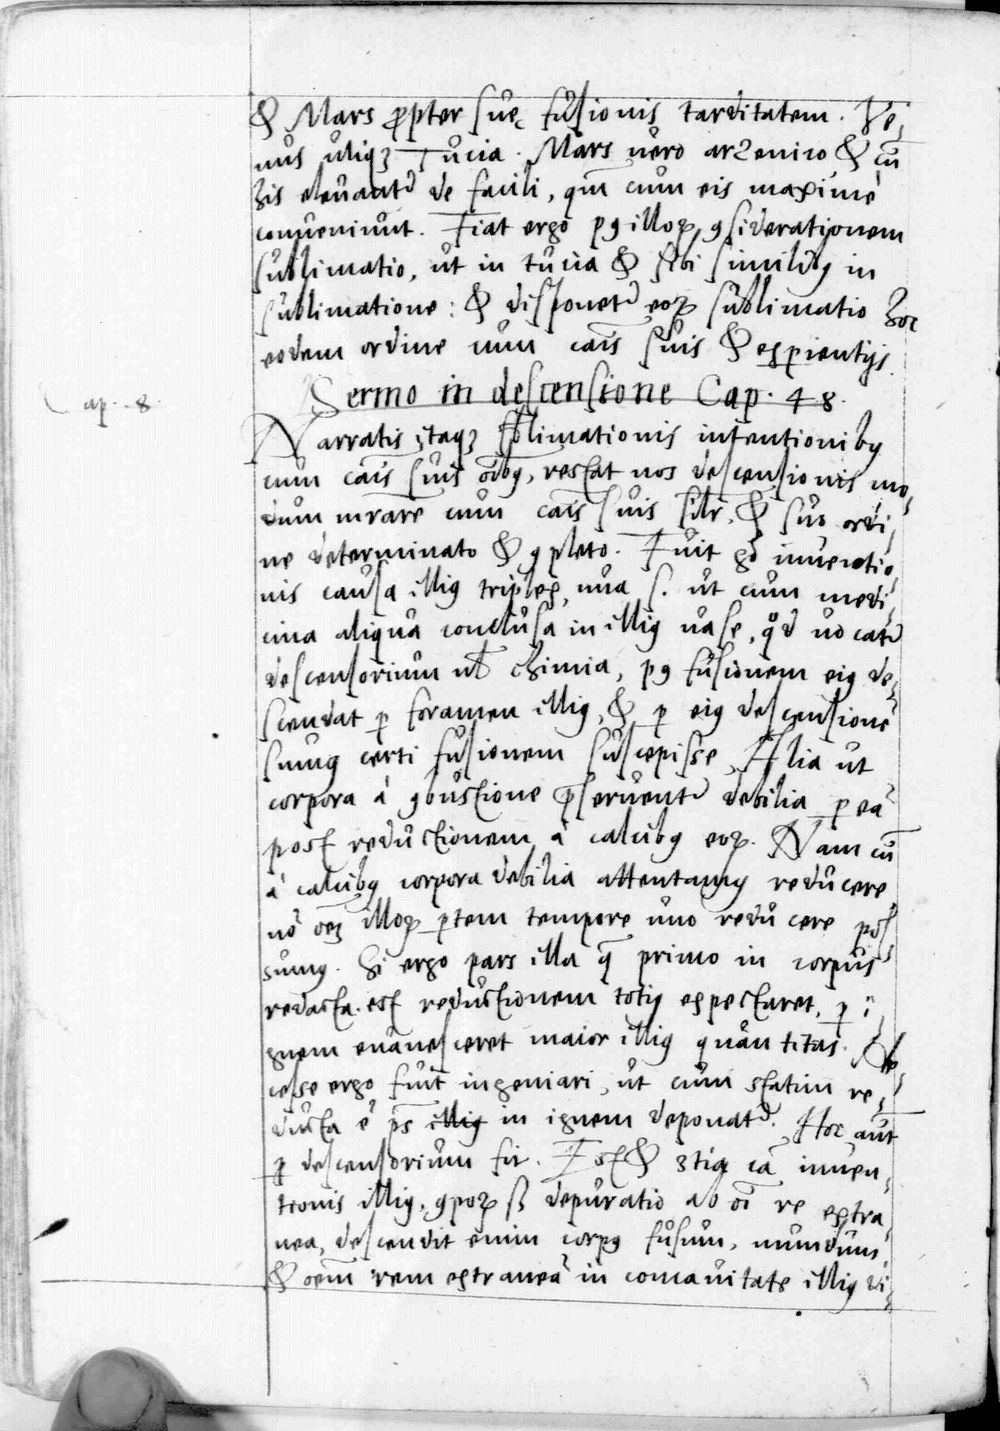 & Mars ꝓpter suę fusionis tarditatem. Ve,
nus utiqꝫ Tucia. Mars uero arzenico & cū
his eleuantᵉ de facili, qm̄ cum eis maximè
conueniunt. Fiat ergo pꝯ illoꝝ ꝯsiderationem
sublimatio, ut in tucia & sibi similibꝯ in
sublimatione: & disponetᵉ eoꝝ sublimatio hoc
eodem ordine cum cāis suis & exꝑientijs.
Sermo in descensione Cap. 48.
Cap. .8.
Narratis itaqꝫ sublimationis intentionibꝯ
cum cāis suis oībꝯ, restat nos descensionis mo,
dum nrare cum cāis suis silr, & suo ordi,
ne determinato & ꝯpleto. Fuit gō inuentio,
nis causa illiꝯ triplex, una s. ut cum medi,
cina aliqua conclusa in illiꝯ uase, qd uocatᵉ
descensorium ul chimia, pꝯ fusionem eiꝯ de,
scendat ꝑ foramen illiꝯ, & ꝑ eiꝯ descensionē
sumꝯ certi fusionem suscepisse. Alia ut
corpora à ꝯbustione p̄seruentᵉ debilia ꝑ eā
post reductionem à calcibꝯ eoꝝ. Nam cū
à calcibꝯ corpora debilia attentamꝯ reducere
nō oēꝫ illoꝝ ꝑtem tempore uno reducere pos,
sumꝯ. Si ergo pars illa q̄ primo in corpus
redacta est reductionem totiꝯ expectaret, ꝑ i,
gnem euanesceret maior illiꝯ quantitas. Ne,
cesse ergo fuit ingeniari, ut cum statim re,
ducta ē ps illiꝯ in ignem deponatᵉ. Hoc aūt
ꝑ descensorium fit. Est & 3tia cā inuen,
tionis illiꝯ, ꝯpoꝝ s. depuratio ab oī re extra,
nea, descendit enim corpꝯ fusum, mundum,
& oēm rem extraneā in concauitate illiꝯ di,